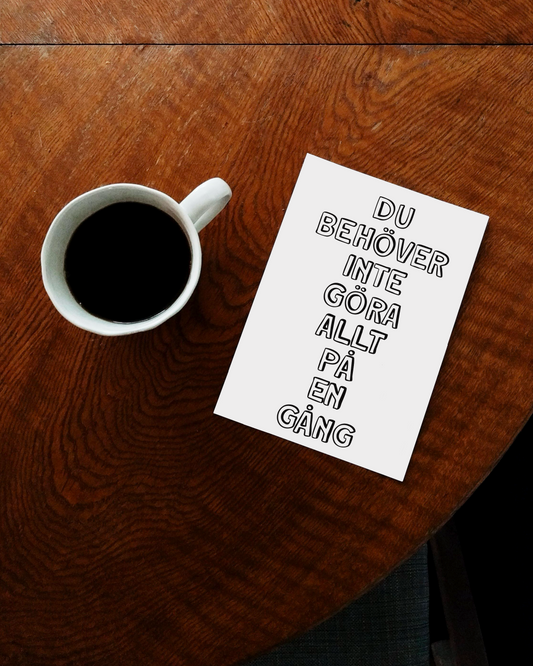 DU
BEHÖVER
INTE
GÖRA
ALLT
PÅ
EN
GÅNG